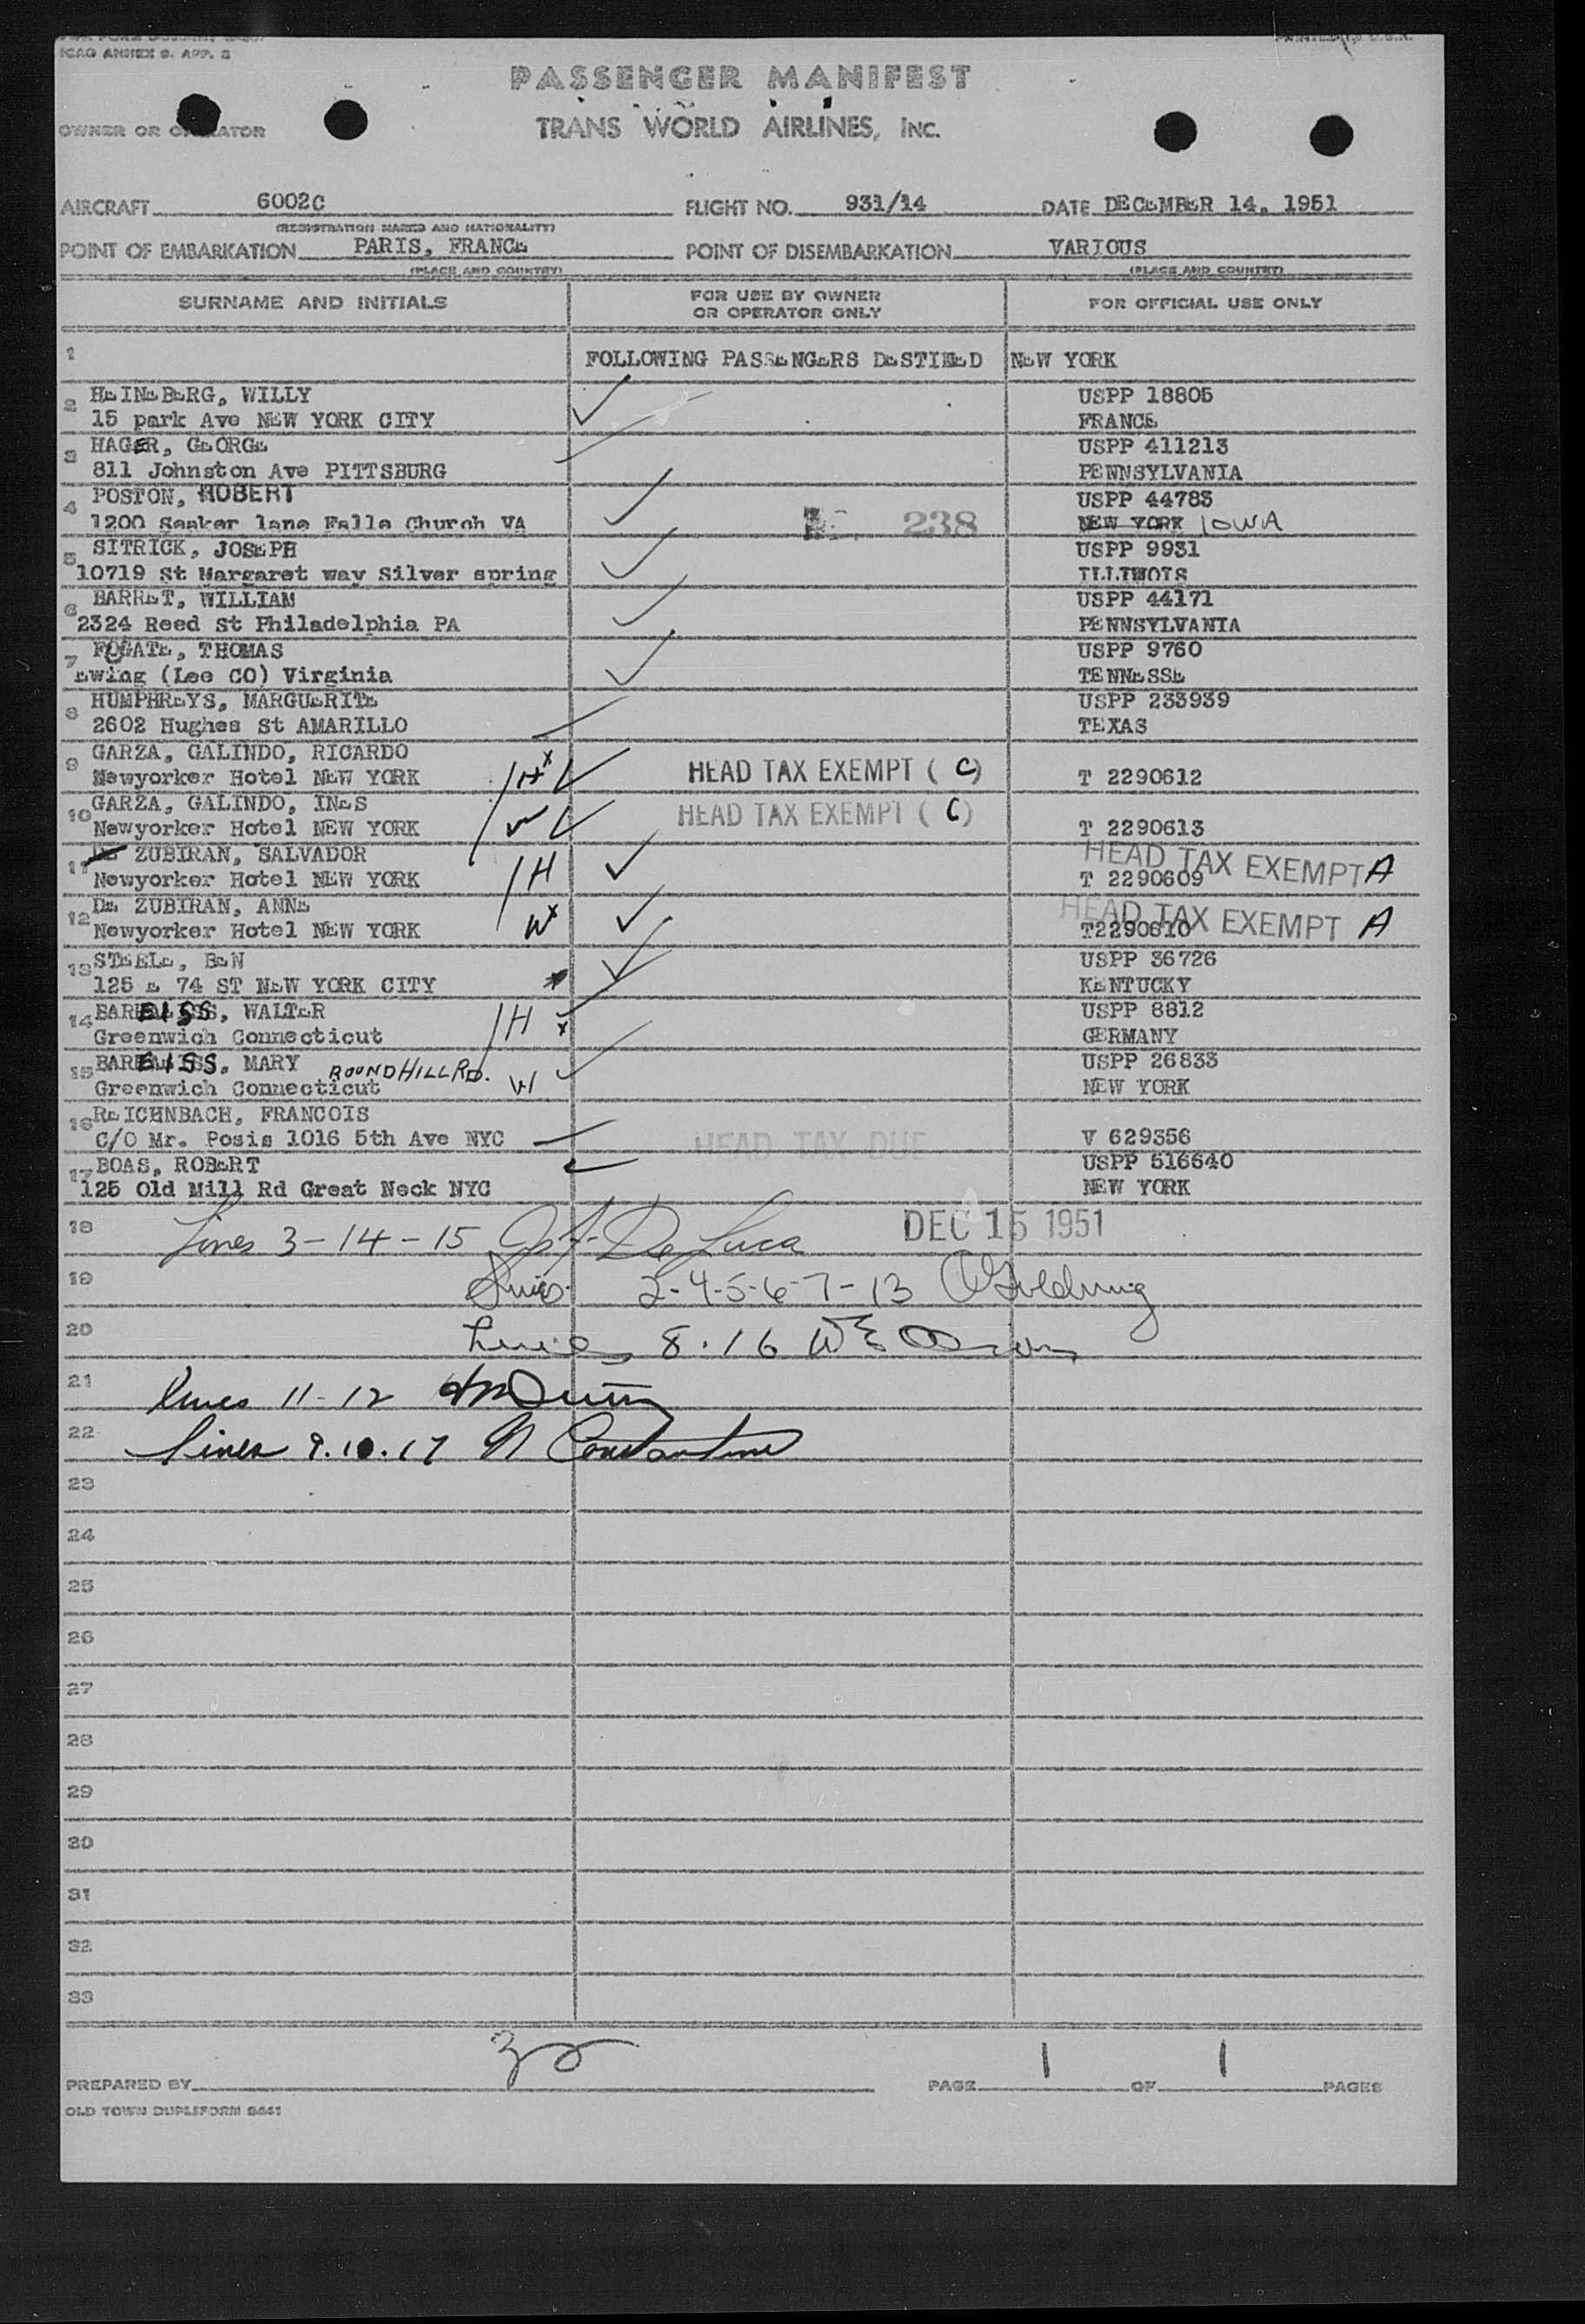 ICAO ANNEX 9. APP. 2
PASSENGER MANIFEST
OWNER OR OPERATOR
TRANS WORLD AIRLINES, INC.
AIRCRAFT 6002C FLIGHT NO. 931/14 DATE DECEMBER 14, 1951
(REGISTRATION MARKS AND NATIONALITY)
POINT OF EMBARKATION PARIS, FRANCE POINT OF DISEMBARKATION VARIOUS
(PLACE AND COUNTRY) (PLACE AND COUNTRY)
SURNAME AND INITIALS FOR USE BY OWNER OR OPERATOR ONLY FOR OFFICIAL USE ONLY
1 FOLLOWING PASSENGERS DESTINED NEW YORK
2 HEINEBERG, WILLY USPP 18805
15 park Ave NEW YORK CITY FRANCE
3 HAGER, GEORGE USPP 411213
811 Johnston Ave PITTSBURG PENNSYLVANIA
4 POSTON, ROBERT USPP 44783
1200 Seaker lane Falls Church VA 238 NEW YORK IOWA
5 SITRICK, JOSEPH USPP 9931
10719 St Margaret way Silver spring ILLINOIS
6 BARRET, WILLIAM USPP 44171
2324 Reed St Philadelphia PA PENNSYLVANIA
7 FUGATE, THOMAS USPP 9760
Ewing (Lee CO) Virginia TENNESSE
8 HUMPHREYS, MARGUERITE USPP 233939
2602 Hughes St AMARILLO TEXAS
9 GARZA, GALINDO, RICARDO
Newyorker Hotel NEW YORK H HEAD TAX EXEMPT ( C ) T 2290612
10 GARZA, GALINDO, INES HEAD TAX EXEMPT ( C )
Newyorker Hotel NEW YORK W T 2290613
11 DE ZUBIRAN, SALVADOR HEAD TAX EXEMPT A
Newyorker Hotel NEW YORK H T 2290609
12 DE ZUBIRAN, ANNE HEAD TAX EXEMPT A
Newyorker Hotel NEW YORK W T2290610
13 STEELE, BEN USPP 36726
125 E 74 ST NEW YORK CITY KENTUCKY
14 BAREISS, WALTER H USPP 8812
Greenwich Connecticut GERMANY
15 BAREISS, MARY ROUND HILL RD. W USPP 26833
Greenwich Connecticut NEW YORK
16 REICHNBACH, FRANCOIS
C/O Mr. Posis 1016 5th Ave NYC HEAD TAX DUE V 629356
17 BOAS, ROBERT USPP 516640
125 Old Mill Rd Great Neck NYC NEW YORK
18 Lines 3-14-15 De Luca DEC 15 1951
19 Lines 2-4-5-6-7-13 Goldring
20 Lines 8.16
21 Lines 11-12
22 Lines 9.10.17 N Constantine
23
24
25
26
27
28
29
30
31
32
33
PREPARED BY PAGE 1 OF 1 PAGES
OLD TOWN DUPLIFORM